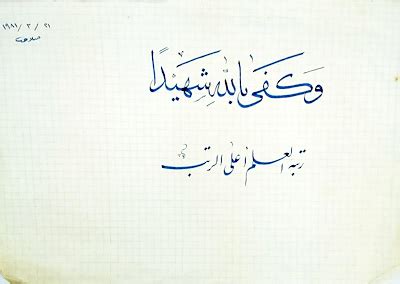 ١٩٨١ / ٣ / ٢١
وَكَفَى بِاللهِ شَهِيْدًا
رتبة العلم أعلى الرتب